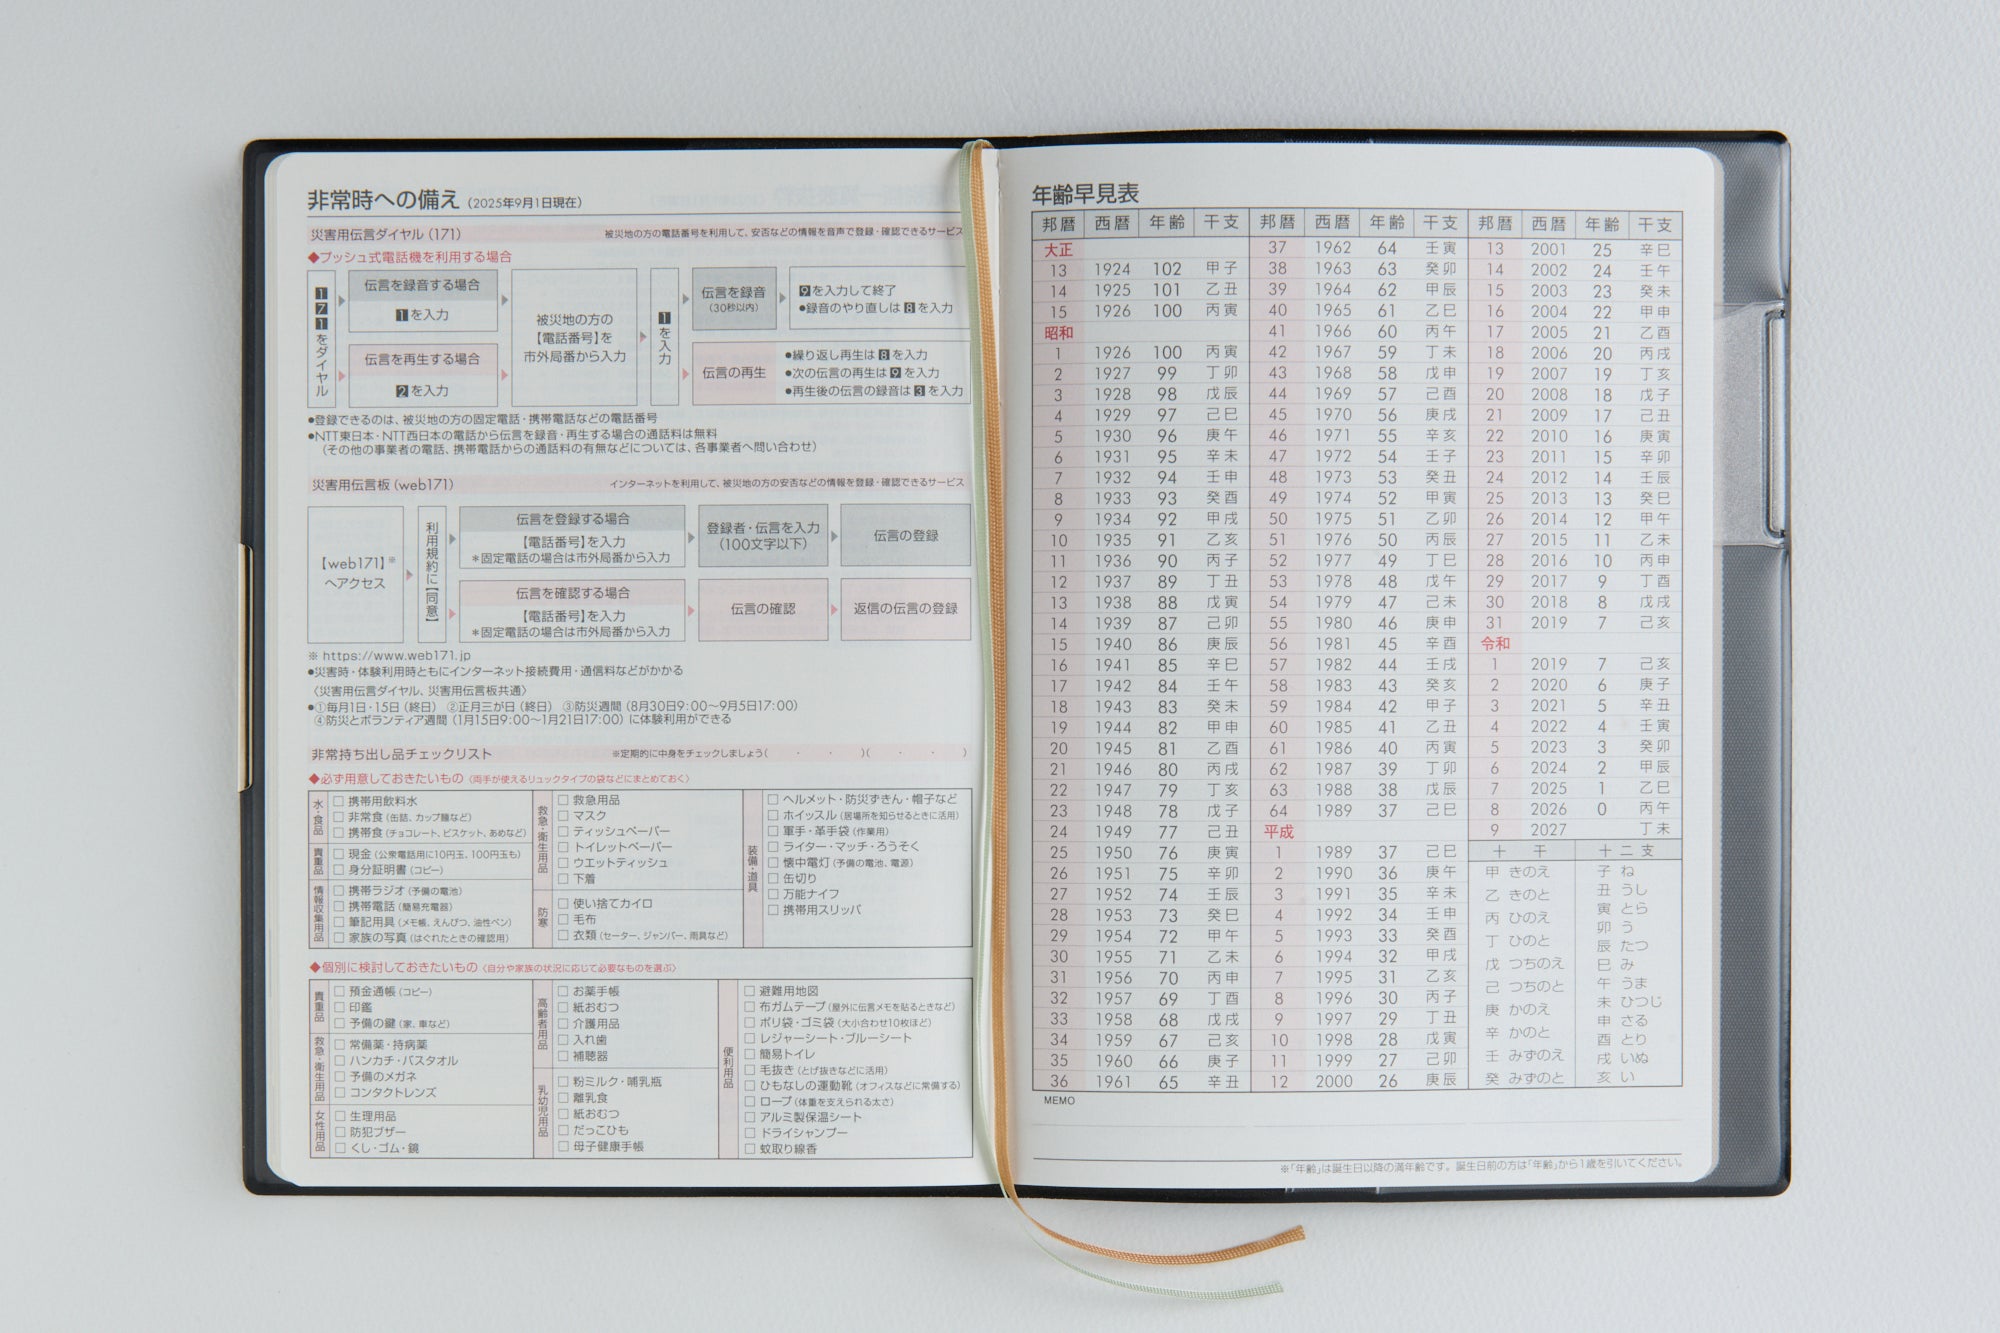 非常時への備え（2025年9月1日現在）
災害用伝言ダイヤル（171） 被災地の方の電話番号を利用して、安否などの情報を音声で登録・確認できるサービス
◆プッシュ式電話機を利用する場合
171をダイヤル
伝言を録音する場合
1を入力
伝言を再生する場合
2を入力
被災地の方の
【電話番号】を
市外局番から入力
1を入力
伝言を録音
（30秒以内）
9を入力して終了
●録音のやり直しは8を入力
伝言の再生
●繰り返し再生は8を入力
●次の伝言の再生は9を入力
●再生後の伝言の録音は3を入力
●登録できるのは、被災地の方の固定電話・携帯電話などの電話番号
●NTT東日本・NTT西日本の電話から伝言を録音・再生する場合の通話料は無料
（その他の事業者の電話、携帯電話からの通話料の有無などについては、各事業者へ問い合わせ）
災害用伝言板（web171） インターネットを利用して、被災地の方の安否などの情報を登録・確認できるサービス
【web171】※
へアクセス
利用規約に【同意】
伝言を登録する場合
【電話番号】を入力
＊固定電話の場合は市外局番から入力
登録者・伝言を入力
（100文字以下）
伝言の登録
伝言を確認する場合
【電話番号】を入力
＊固定電話の場合は市外局番から入力
伝言の確認
返信の伝言の登録
※ https://www.web171.jp
●災害時・体験利用時ともにインターネット接続費用・通信料などがかかる
〈災害用伝言ダイヤル、災害用伝言板共通〉
●①毎月1日・15日（終日） ②正月三が日（終日） ③防災週間（8月30日9：00〜9月5日17：00）
④防災とボランティア週間（1月15日9：00〜1月21日17：00）に体験利用ができる
非常持ち出し品チェックリスト ※定期的に中身をチェックしましょう（　・　・　）（　・　・　）
◆必ず用意しておきたいもの〈両手が使えるリュックタイプの袋などにまとめておく〉
水・食品
□ 携帯用飲料水
□ 非常食（缶詰、カップ麺など）
□ 携帯食（チョコレート、ビスケット、あめなど）
貴重品
□ 現金（公衆電話用に10円玉、100円玉も）
□ 身分証明書（コピー）
情報収集用品
□ 携帯ラジオ（予備の電池）
□ 携帯電話（簡易充電器）
□ 筆記用具（メモ帳、えんぴつ、油性ペン）
□ 家族の写真（はぐれたときの確認用）
救急・衛生用品
□ 救急用品
□ マスク
□ ティッシュペーパー
□ トイレットペーパー
□ ウエットティッシュ
□ 下着
防寒
□ 使い捨てカイロ
□ 毛布
□ 衣類（セーター、ジャンパー、雨具など）
装備・道具
□ ヘルメット・防災ずきん・帽子など
□ ホイッスル（居場所を知らせるときに活用）
□ 軍手・革手袋（作業用）
□ ライター・マッチ・ろうそく
□ 懐中電灯（予備の電池、電源）
□ 缶切り
□ 万能ナイフ
□ 携帯用スリッパ
◆個別に検討しておきたいもの〈自分や家族の状況に応じて必要なものを選ぶ〉
貴重品
□ 預金通帳（コピー）
□ 印鑑
□ 予備の鍵（家、車など）
救急・衛生用品
□ 常備薬・持病薬
□ ハンカチ・バスタオル
□ 予備のメガネ
□ コンタクトレンズ
女性用品
□ 生理用品
□ 防犯ブザー
□ くし・ゴム・鏡
高齢者用品
□ お薬手帳
□ 紙おむつ
□ 介護用品
□ 入れ歯
□ 補聴器
乳幼児用品
□ 粉ミルク・哺乳瓶
□ 離乳食
□ 紙おむつ
□ だっこひも
□ 母子健康手帳
便利用品
□ 避難用地図
□ 布ガムテープ（屋外に伝言メモを貼るときなど）
□ ポリ袋・ゴミ袋（大小合わせ10枚ほど）
□ レジャーシート・ブルーシート
□ 簡易トイレ
□ 毛抜き（とげ抜きなどに活用）
□ ひもなしの運動靴（オフィスなどに常備する）
□ ロープ（体重を支えられる太さ）
□ アルミ製保温シート
□ ドライシャンプー
□ 蚊取り線香
年齢早見表
邦暦 西暦 年齢 干支 邦暦 西暦 年齢 干支 邦暦 西暦 年齢 干支
大正
13 1924 102 甲子
14 1925 101 乙丑
15 1926 100 丙寅
昭和
1 1926 100 丙寅
2 1927 99 丁卯
3 1928 98 戊辰
4 1929 97 己巳
5 1930 96 庚午
6 1931 95 辛未
7 1932 94 壬申
8 1933 93 癸酉
9 1934 92 甲戌
10 1935 91 乙亥
11 1936 90 丙子
12 1937 89 丁丑
13 1938 88 戊寅
14 1939 87 己卯
15 1940 86 庚辰
16 1941 85 辛巳
17 1942 84 壬午
18 1943 83 癸未
19 1944 82 甲申
20 1945 81 乙酉
21 1946 80 丙戌
22 1947 79 丁亥
23 1948 78 戊子
24 1949 77 己丑
25 1950 76 庚寅
26 1951 75 辛卯
27 1952 74 壬辰
28 1953 73 癸巳
29 1954 72 甲午
30 1955 71 乙未
31 1956 70 丙申
32 1957 69 丁酉
33 1958 68 戊戌
34 1959 67 己亥
35 1960 66 庚子
36 1961 65 辛丑
37 1962 64 壬寅
38 1963 63 癸卯
39 1964 62 甲辰
40 1965 61 乙巳
41 1966 60 丙午
42 1967 59 丁未
43 1968 58 戊申
44 1969 57 己酉
45 1970 56 庚戌
46 1971 55 辛亥
47 1972 54 壬子
48 1973 53 癸丑
49 1974 52 甲寅
50 1975 51 乙卯
51 1976 50 丙辰
52 1977 49 丁巳
53 1978 48 戊午
54 1979 47 己未
55 1980 46 庚申
56 1981 45 辛酉
57 1982 44 壬戌
58 1983 43 癸亥
59 1984 42 甲子
60 1985 41 乙丑
61 1986 40 丙寅
62 1987 39 丁卯
63 1988 38 戊辰
64 1989 37 己巳
平成
1 1989 37 己巳
2 1990 36 庚午
3 1991 35 辛未
4 1992 34 壬申
5 1993 33 癸酉
6 1994 32 甲戌
7 1995 31 乙亥
8 1996 30 丙子
9 1997 29 丁丑
10 1998 28 戊寅
11 1999 27 己卯
12 2000 26 庚辰
13 2001 25 辛巳
14 2002 24 壬午
15 2003 23 癸未
16 2004 22 甲申
17 2005 21 乙酉
18 2006 20 丙戌
19 2007 19 丁亥
20 2008 18 戊子
21 2009 17 己丑
22 2010 16 庚寅
23 2011 15 辛卯
24 2012 14 壬辰
25 2013 13 癸巳
26 2014 12 甲午
27 2015 11 乙未
28 2016 10 丙申
29 2017 9 丁酉
30 2018 8 戊戌
31 2019 7 己亥
令和
1 2019 7 己亥
2 2020 6 庚子
3 2021 5 辛丑
4 2022 4 壬寅
5 2023 3 癸卯
6 2024 2 甲辰
7 2025 1 乙巳
8 2026 0 丙午
9 2027 丁未
十干
甲 きのえ
乙 きのと
丙 ひのえ
丁 ひのと
戊 つちのえ
己 つちのと
庚 かのえ
辛 かのと
壬 みずのえ
癸 みずのと
十二支
子 ね
丑 うし
寅 とら
卯 う
辰 たつ
巳 み
午 うま
未 ひつじ
申 さる
酉 とり
戌 いぬ
亥 い
MEMO
※「年齢」は誕生日以降の満年齢です。誕生日前の方は「年齢」から1歳を引いてください。